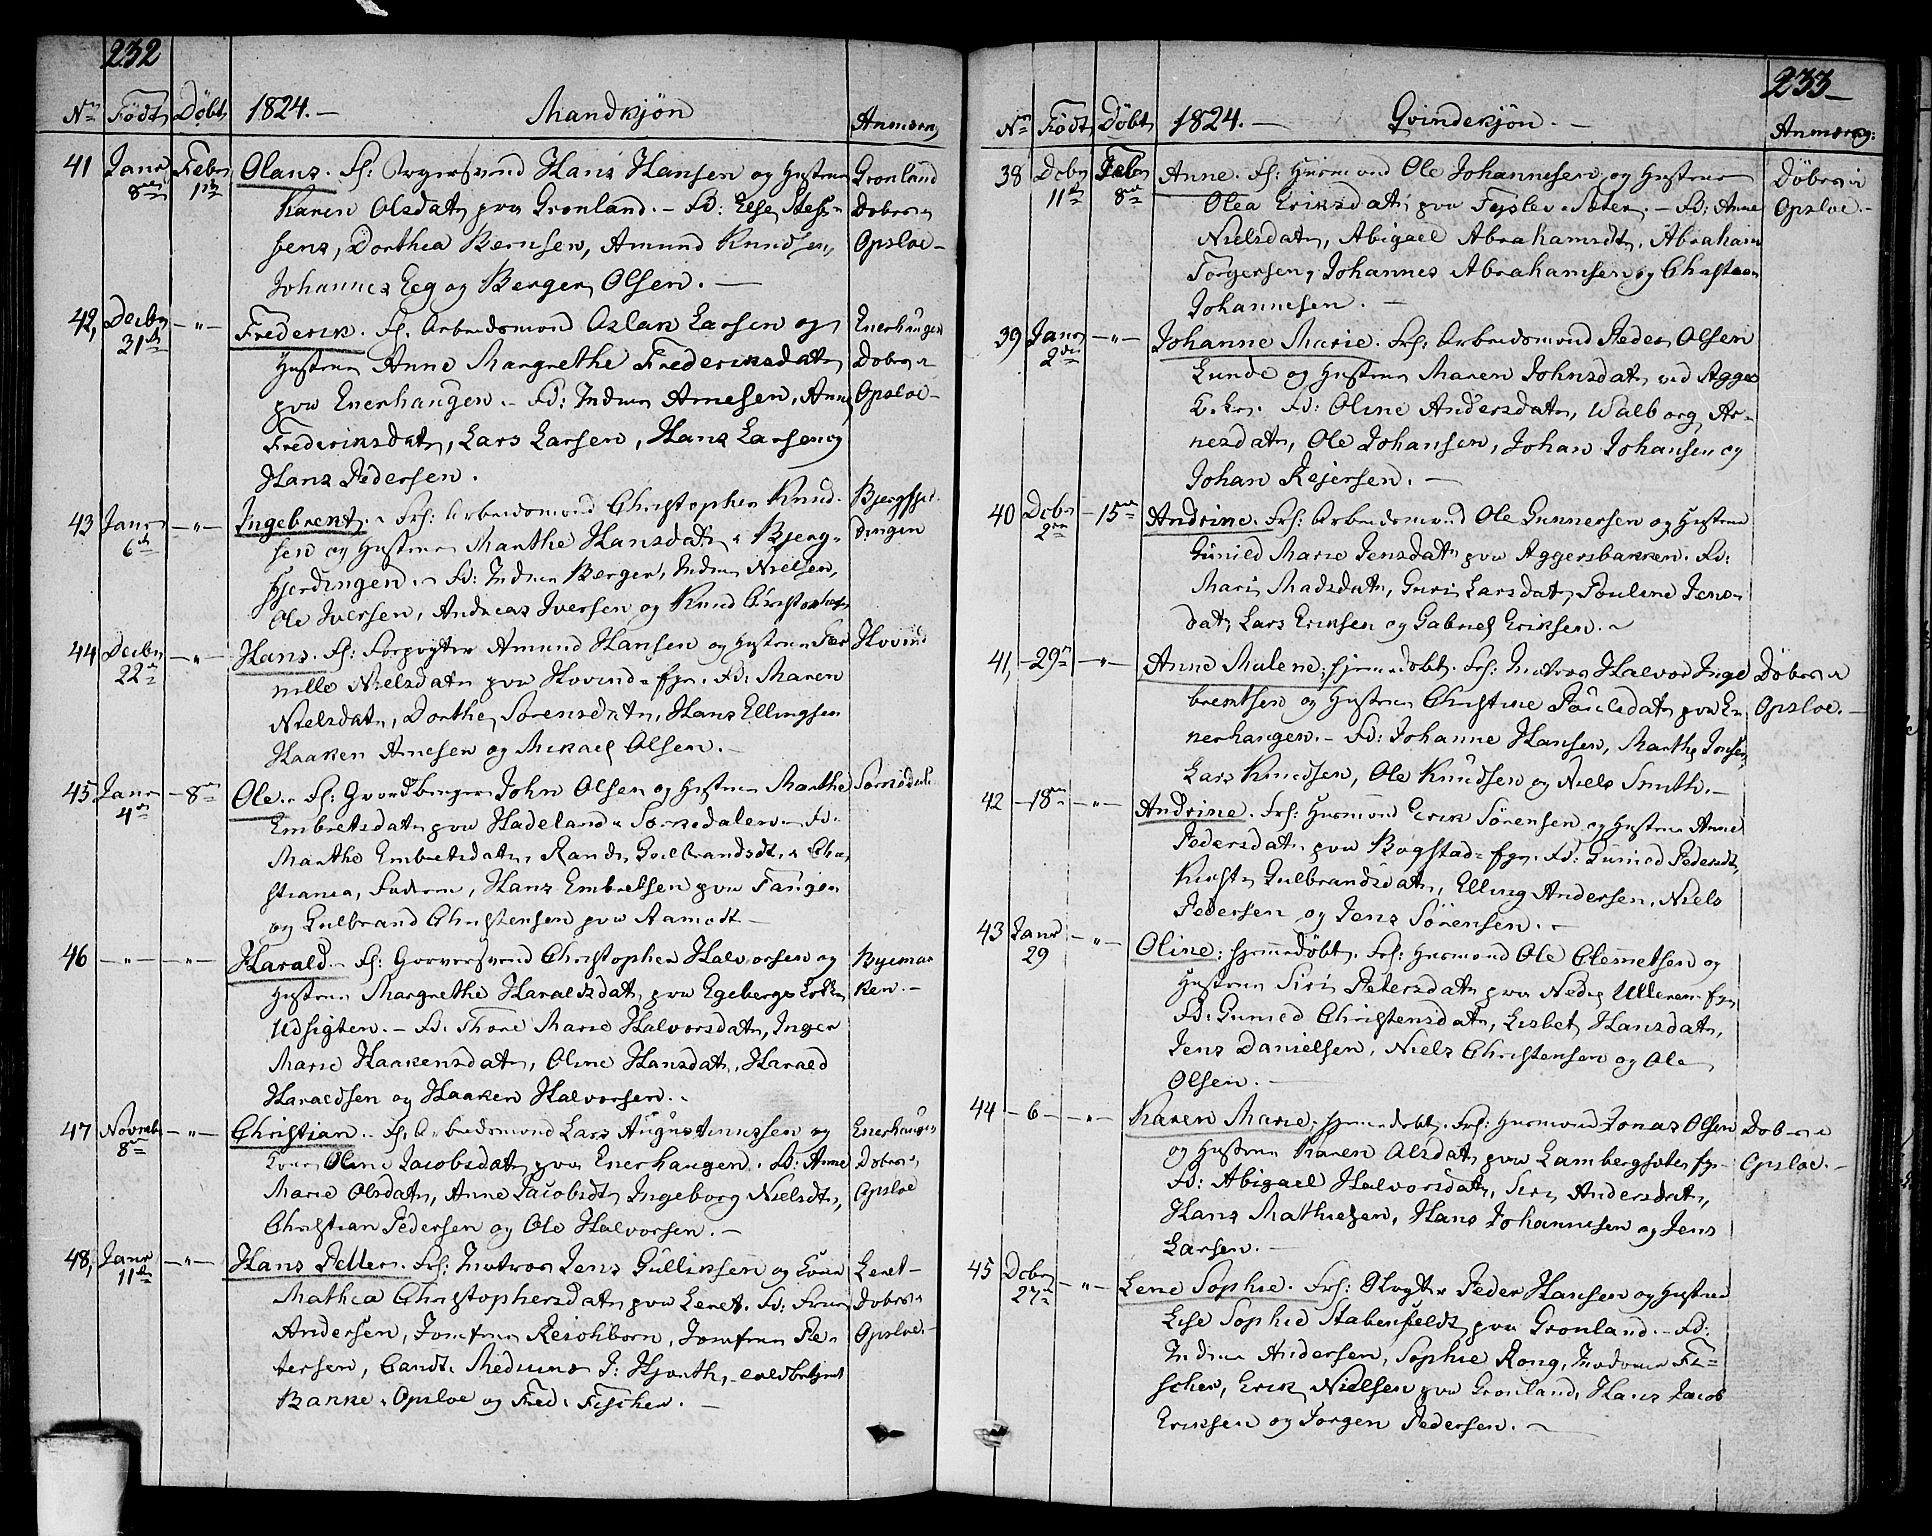 232
Nr Födt Döbt 1824.— Mandkjön Anmærkn
41 Janr 8de Febr 1ste Olaus. F: Hans Hansen og Hustrue Grönland
Karen Olsdatr paa Grönland. — Fd: Else Döbes i
Dorthea Bernsen, Amund Knudsen, Opsloe —
Johannes Eeg og Berger Olsen. —
42, Decbr 31te — " — Frederik. F: Arbeidsmand Aslak Larsen og Enerhaugen
Hustrue Anne Margrethe Frederiksdatr Döbes i
paa Enerhaugen. — Fd: Arnesen, Anne Opsloe —
Frederiksdatr, Lars Larsen, Hans Larsen og
Hans Pedersen.
43 Janr 6te — " — Ingebrent. Frf: Arbeidsmand Christopher Knud-
sen og Hustrue Marthe Hansdatr i Bjerg-
fjerdingen. — Fd: Berger, Nielsen,
Ole Iversen, Andreas Iversen og Knud
44 Decbr 22de — " — Hans. F: Forpagter Amund Hansen og Hustrue Per Hovind
nille Nielsdatr paa Hovind-. Fd: Maren
Nielsdatr, Dorthe Sörensdatr, Hans Ellingsen
Haaken Arnesen og Mikael Olsen. —
45 Janr 4de — 8de Ole. F: Gaardbruger John Olsen og Hustrue Marthe
Embretsdatr paa Hadeland i Sörkedalen — Fd:
Marthe Embretsdatr, Randi Gulbrandsdtr i Chri
stiania, Faderen, Hans Embretsen paa Tangen
og Gulbrand Christensen paa Aamodt —
46 — " — — " — Harald. F: Garversvend Christopher Halvorsen og Byemar
Hustrue Margrethe Haraldsdatr paa Egebergs Lökke ken. —
Udsigten. — Fd: Thore Marie Halvorsdatr, Inger
Marie Haakensdatr, Oline Hansdatr, Harald
Haraldsen og Haaken Halvorsen. —
47 Novembr 8de — " — Christian. F: Arbeidsmand Lars Augustinussen og Enerhaugen
Kone Oline Jacobsdatr paa Enerhaugen. Fd: Anne Döbes i
Marie Olsdatr, Anne Jacobsdtr Ingeborg Nielsdtr, Opsloe
Christian Pedersen og Ole Halvorsen. —
48, Janr 11te — " — Hans Petter. Frf: Matros Jens Gulliksen og Kone Leret —
Mathea Christophersdatr paa Leret. Fd: Frue Döbes i
Andersen, Jomfrue Reichborn, Jomfrue Pe- Opsloe. —
tersen, Candt: Medicin: P: Hjorth,
Banke i Opsloe og Fred: Fischer. —
233 —
Nr Födt Döbt 1824. — Qvindekjön. — Anmærkg:
38 Decbr 11te Febr 8de Anne. F: Huusmand Ole Johannesen og Hustrue Döbes i
Olea Eriksdatr paa — Fd: Anne Opsloe. —
Nielsdatr, Abigael Abrahamsdtr. Abraham
Torgersen, Johannes Abrahamsen og Christian
Johannesen. —
39 Janr 2den — " — Johanne Marie. Frf: Arbeidsmand Peder Olsen
Lunde og Hustrue Maren Johnsdatr ved Agger
Fd: Oline Andersdatr, Walborg Ar-
nesdatr, Ole Johansen, Johan Johansen og
Johan Rejersen. —
40 Decbr 2den — 15de Andrine. Frf: Arbeidsmand Ole Gunnersen og Hustrue
Gunild Marie Jensdatr paa Aggersbakken. Fd:
Mari Madsdatr, Guri Larsdatr, Pouline Jens-
datr, Lars Eriksen og Gabriel Eriksen. —
41, — 29de — " — Anne Malene; hjemmedöbt. Frf: Matros Halvor Inge Döbes i
brentsen og Hustrue Christine Poulsdatr paa E- Opsloe. —
nerhaugen. — Fd: Johanne Hansen, Marthe Jonsen,
Lars Knudsen, Ole Knudsen og Niels Smith. —
42 — 18de — " — Andrine. Frf: Huusmand Erik Sörensen og Hustrue Anne
Pedersdatr paa Bogstad-. Fd: Gunild Pedersdtr,
Gulbrandsdatr, Elling Andersen, Niels
Pedersen og Jens Sörensen. —
43 Janr 29 — " — Oline; hjemmedöbt. Frf: Huusmand Ole Clemetsen og
Hustrue Siri Petersdatr paa Nedre Ulleren.
Fd: Gunild Christensdatr, Lisbet Hansdatr,
Jens Danielsen, Niels Christensen og Ole
Olsen. —
44 — 6 — — " — Karen Marie; hjemmedöbt. Frf: Huusmand Jonas Olsen Döbes i
og Hustrue Karen Olsdatr paa Opsloe. —
Fd: Abigael Halvorsdatr, Siri Andersdatr,
Hans Mathiesen, Hans Johannesen og Jens
Larsen. —
45 Decbr 27de — " — Lene Sophie. Frf: Peder Hansen og Hustrue
Lise Sophie Stabenfeldt paa Grönland. — Fd:
Andersen, Sophie Rong, Madame Fi-
scher, Erik Nielsen paa Grönland, Hans Jacob
Eriksen og Jörgen Pedersen. —